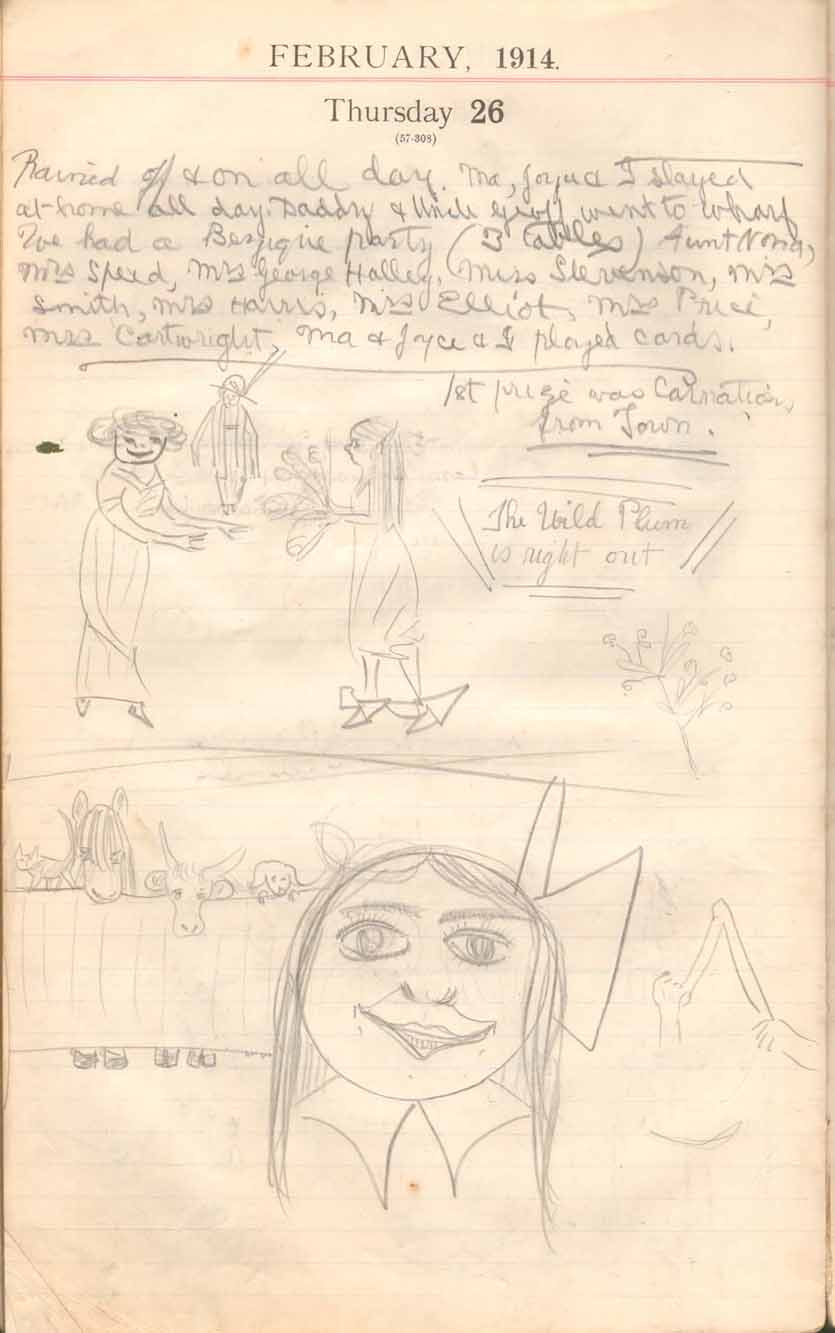 FEBRUARY, 1914.
Thursday 26
(57-308)
Rained off & on all day. Ma, Joyce & I stayed
at home all day. Daddy & Uncle Geoff went to wharf
We had a Bezique party (3 tables) Aunt Nona,
Mrs Speed, Mrs George Halley, Miss Stevenson, Mrs
Smith, Mrs Harris, Mrs Elliot, Mrs Price,
Mrs Cartwright, Ma & Joyce & I played cards.
1st prize was Carnations,
from Town.
The Wild Plum
is right out